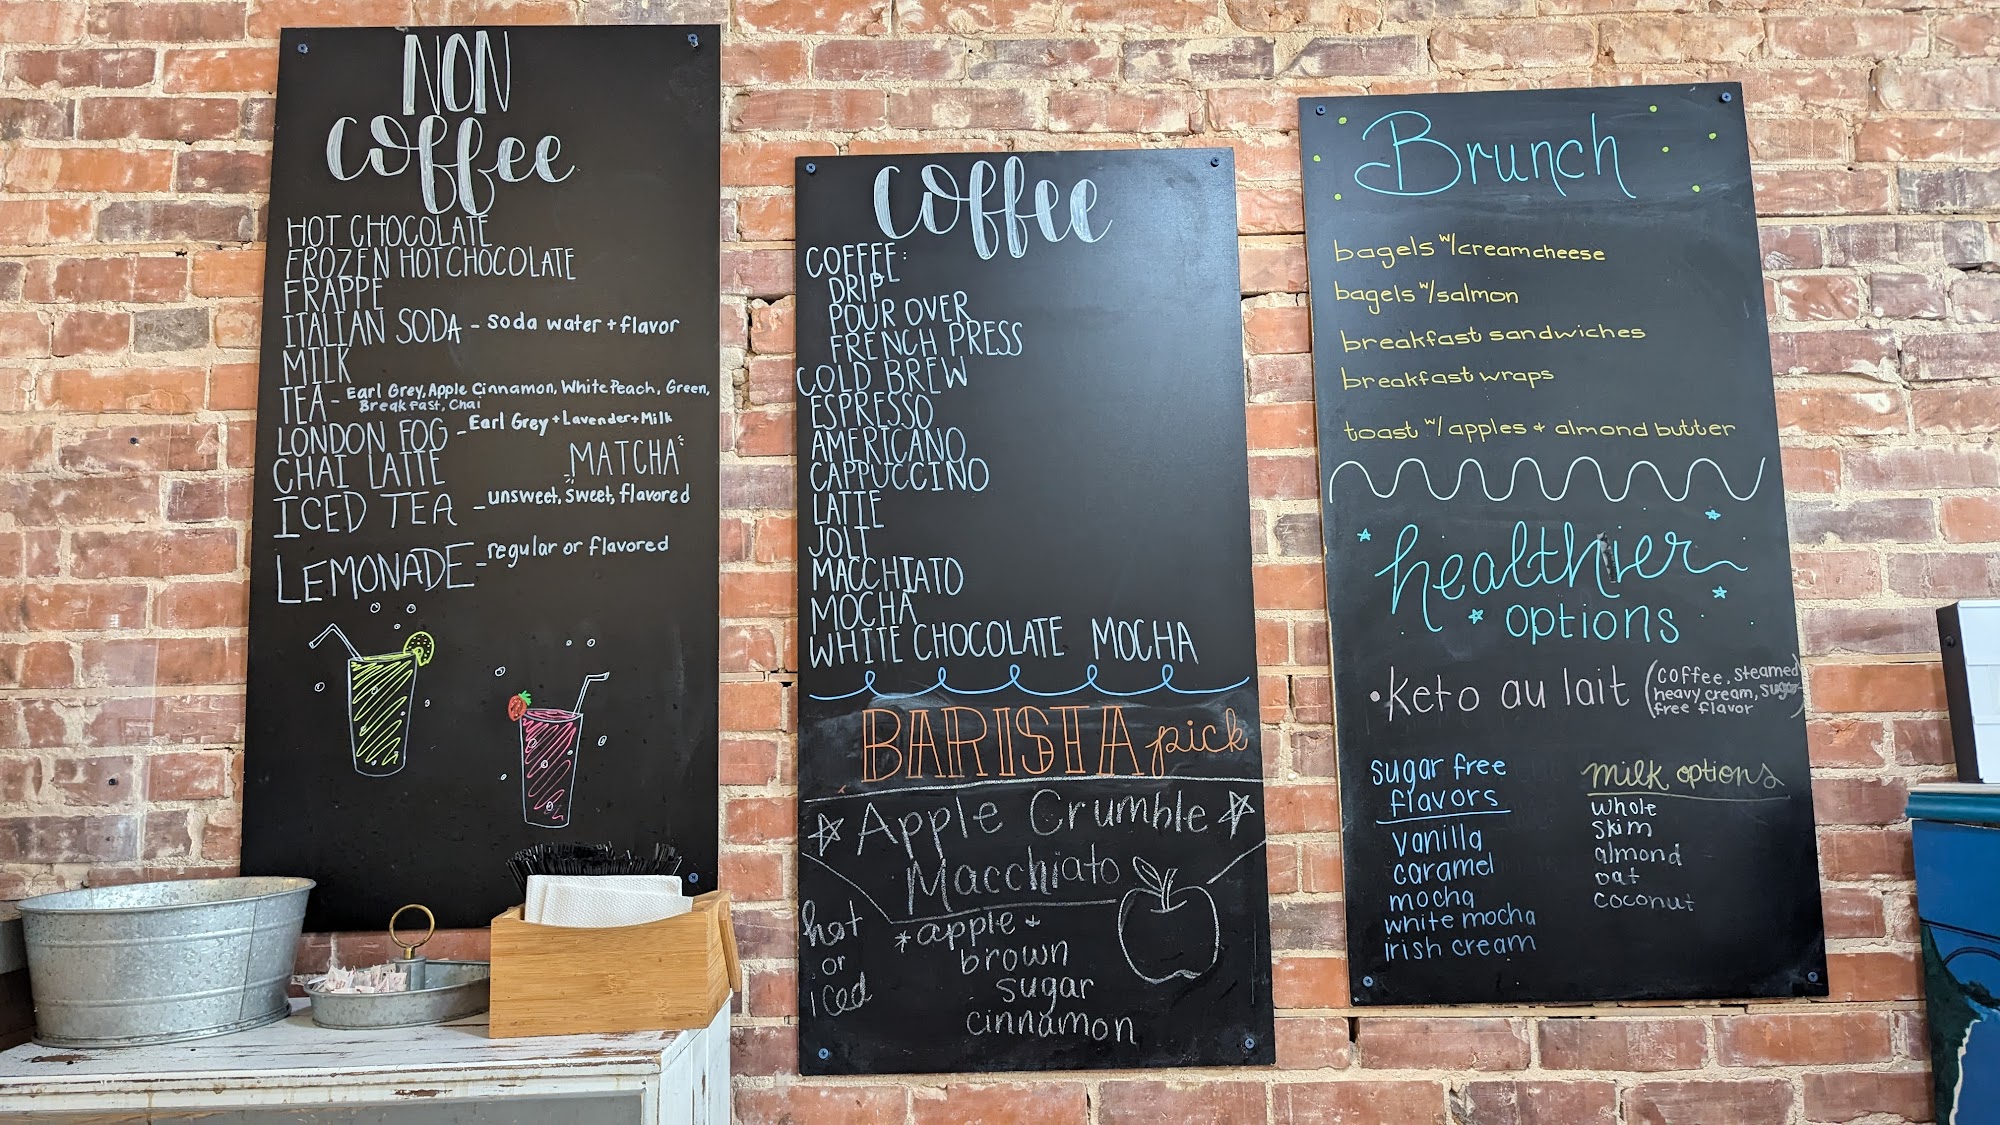 NON
Coffee
HOT CHOCOLATE
FROZEN HOT CHOCOLATE
FRAPPE
ITALIAN SODA - soda water + flavor
MILK
TEA - Earl Grey, Apple Cinnamon, White Peach, Green,
Breakfast, Chai
LONDON FOG - Earl Grey + Lavender + Milk
CHAI LATTE
MATCHA
ICED TEA - unsweet, sweet, flavored
LEMONADE - regular or flavored
Coffee
COFFEE:
DRIP
POUR OVER
FRENCH PRESS
COLD BREW
ESPRESSO
AMERICANO
CAPPUCCINO
LATTE
JOLT
MACCHIATO
MOCHA
WHITE CHOCOLATE MOCHA
BARISTA pick
Apple Crumble
Macchiato
hot
or
iced
*apple +
brown
sugar
cinnamon
Brunch
bagels w/creamcheese
bagels w/salmon
breakfast sandwiches
breakfast wraps
toast w/ apples + almond butter
healthier
options
• keto au lait (coffee, steamed
heavy cream, sugar
free flavor)
sugar free
flavors
vanilla
caramel
mocha
white mocha
irish cream
milk options
whole
skim
almond
oat
coconut